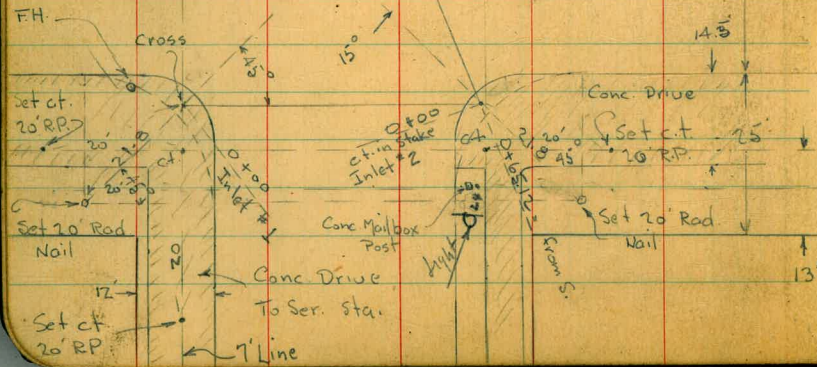 F.H.
Cross
45°
15°
14.5'
Conc. Drive
Set ct.
20' R.P.
20'
ct.
0+00
Inlet #1
0+00
ct. in stake
Inlet #2
ct.
20'
45°
Set c.t.
20' R.P.
25'
20'
Set 20' Rad
Nail
Conc. Mailbox
Post
24"
light
Set 20' Rad
Nail
from S.
13'
20
12'
Conc. Drive
To Ser. Sta.
Set ct
20' R.P
7' Line